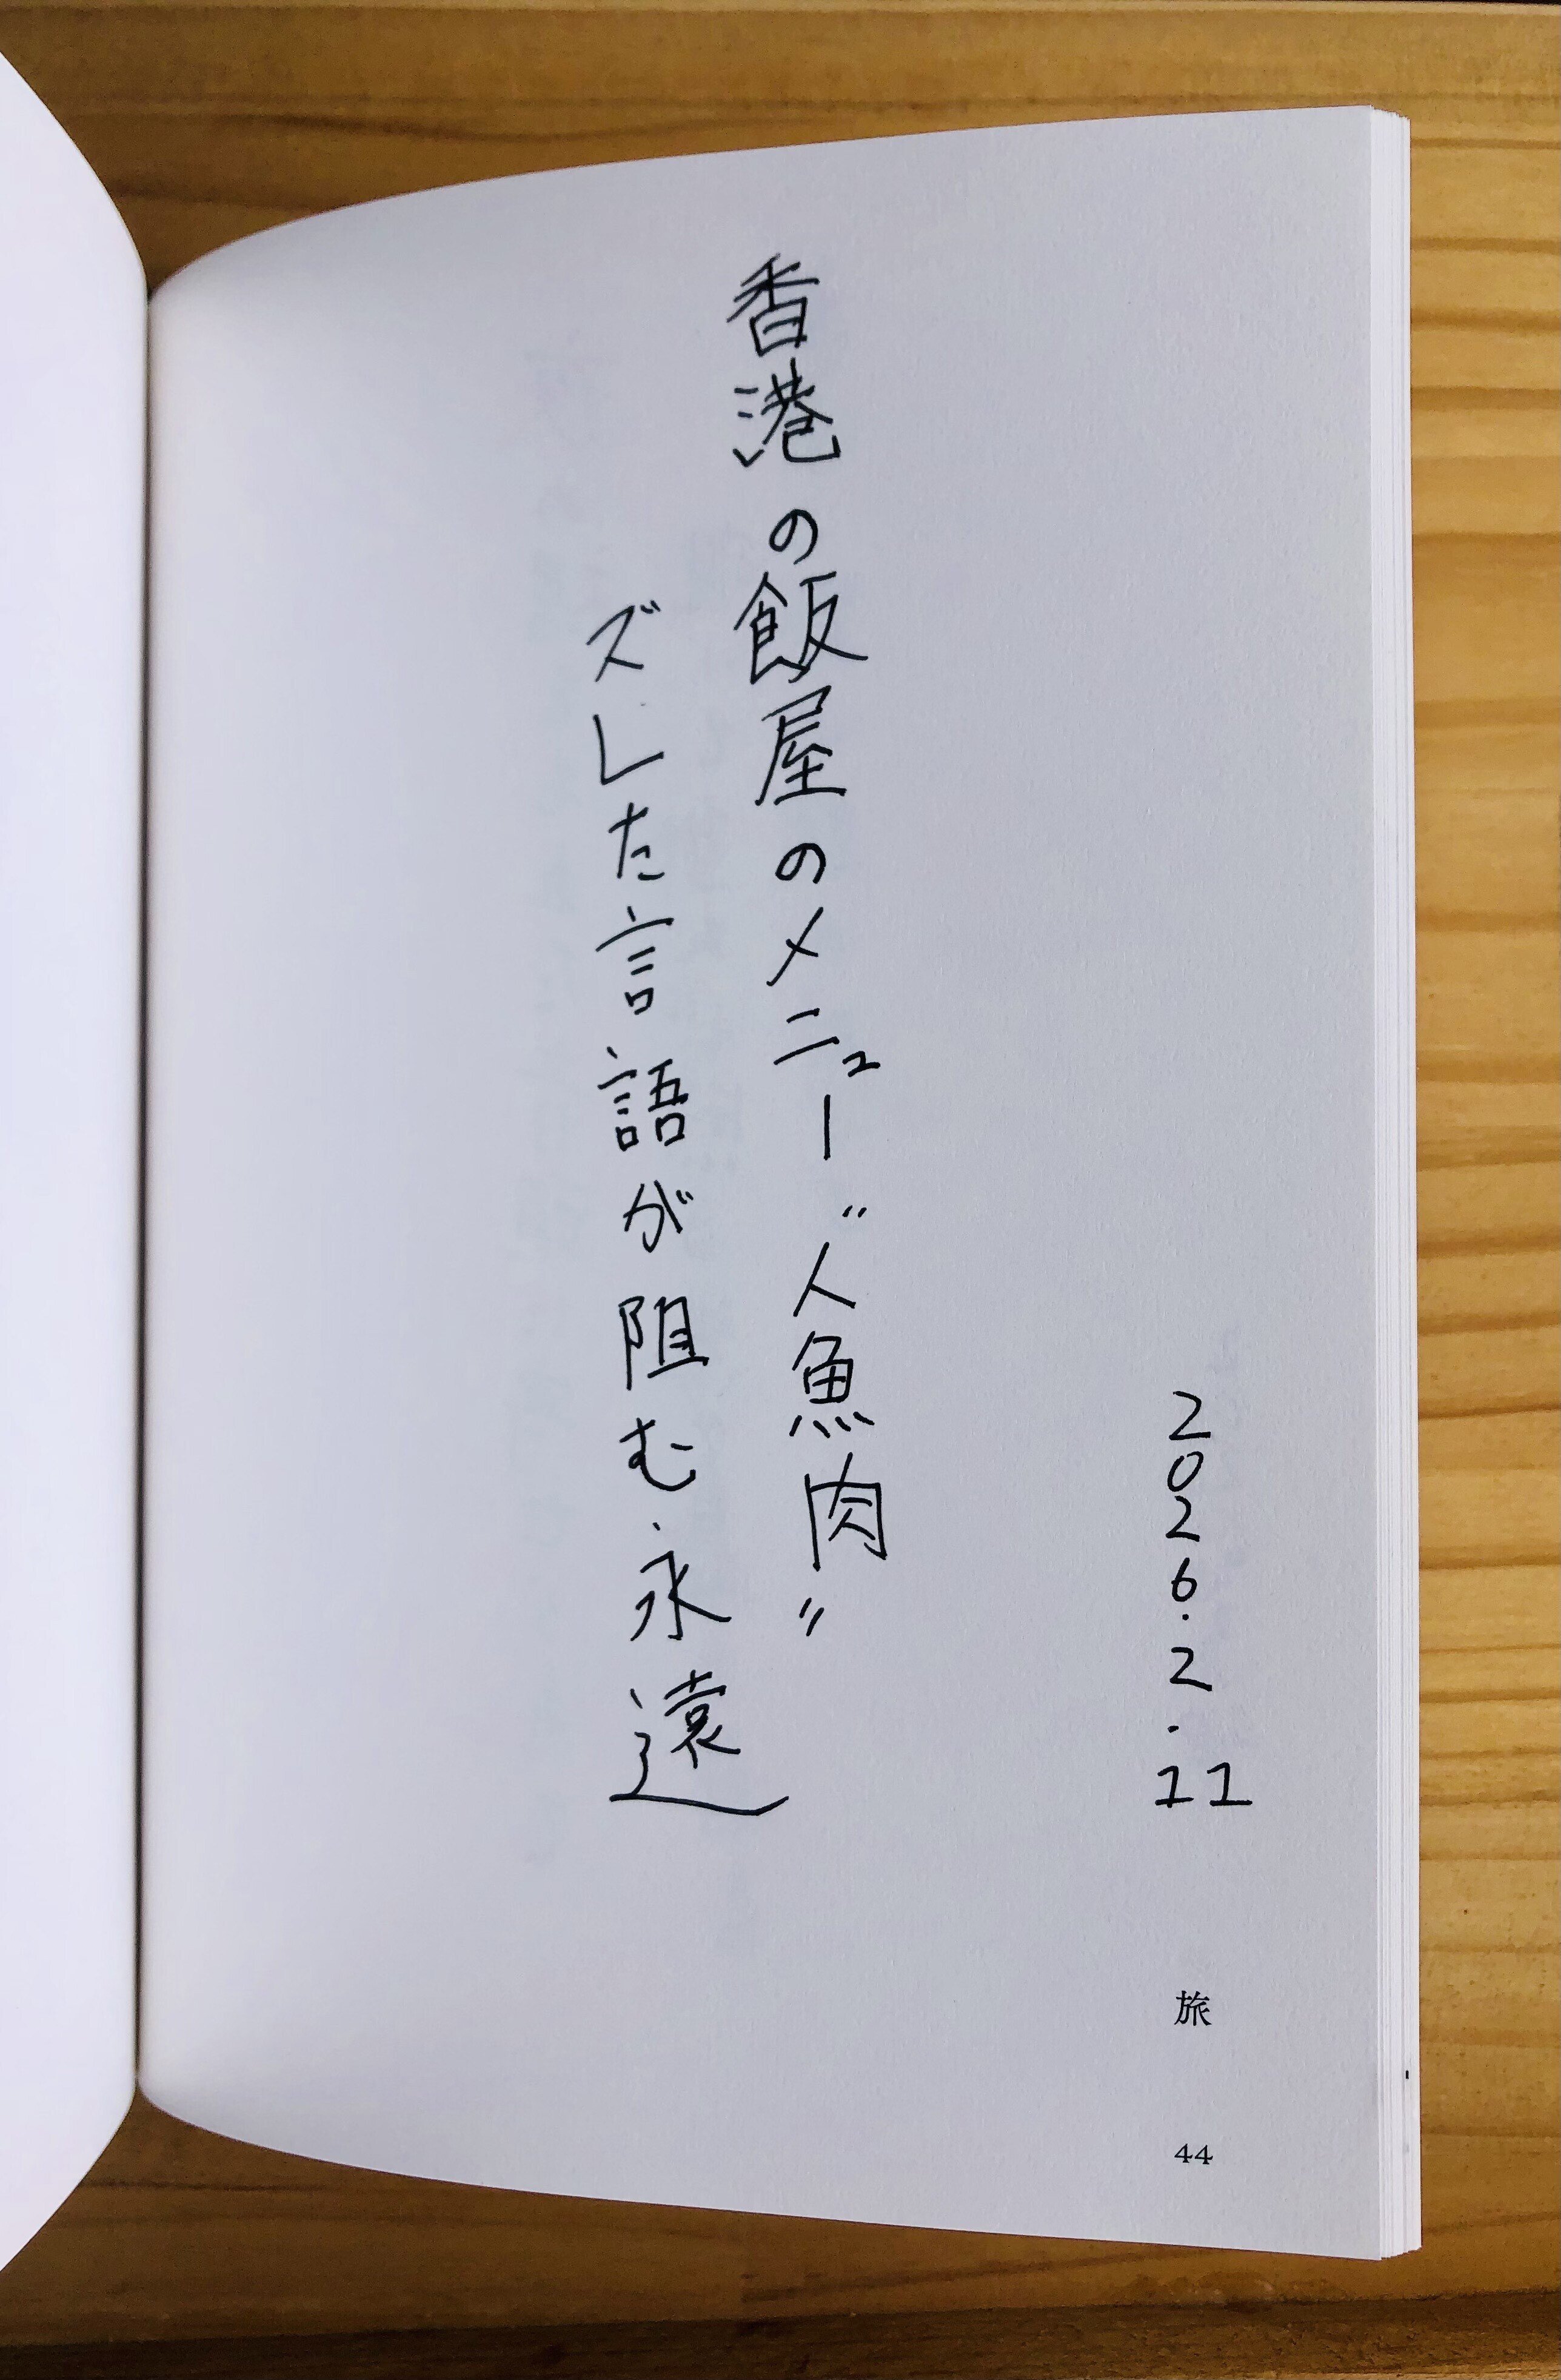 2026.2.11
香港の飯屋のメニュー〝人魚肉〟
ズレた言語が阻む永遠
旅
44